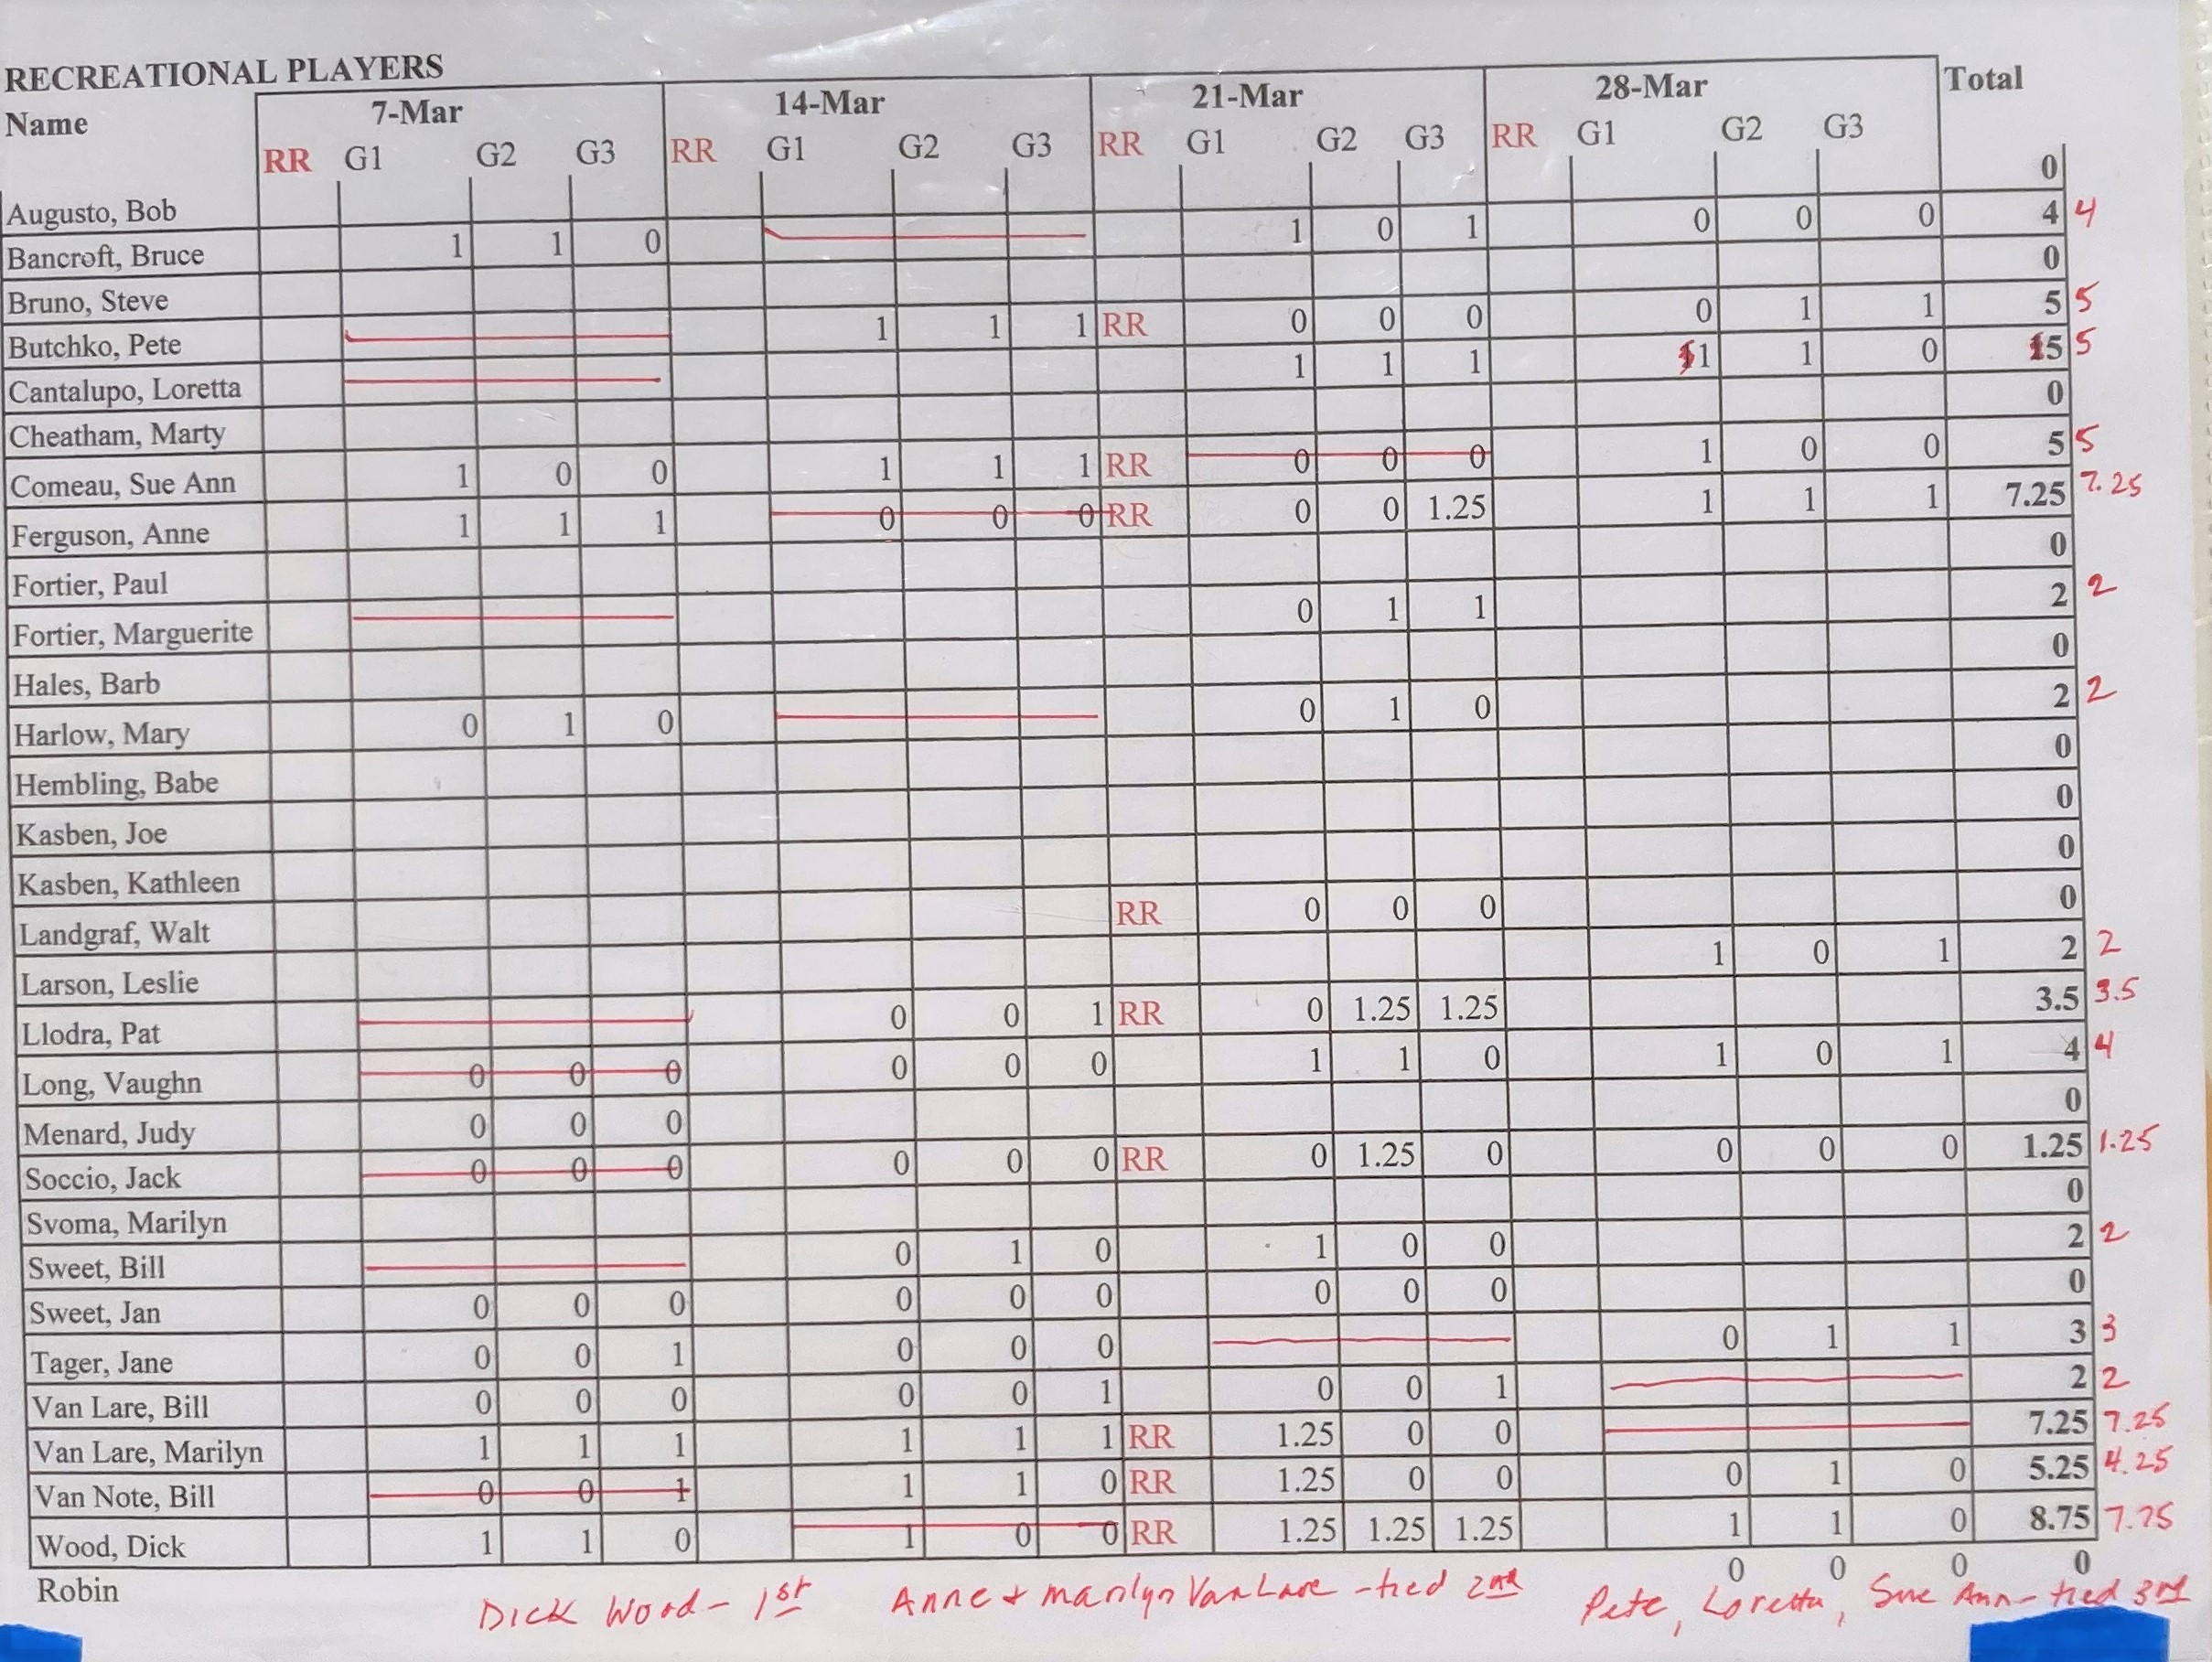 RECREATIONAL PLAYERS
Name 7-Mar 14-Mar 21-Mar 28-Mar Total
RR G1 G2 G3 RR G1 G2 G3 RR G1 G2 G3 RR G1 G2 G3
Augusto, Bob 0
Bancroft, Bruce 1 1 0 1 0 1 0 0 0 4 4
Bruno, Steve 0
Butchko, Pete 1 1 1 RR 0 0 0 0 1 1 5 5
Cantalupo, Loretta 1 1 1 1 1 0 5 5
Cheatham, Marty 0
Comeau, Sue Ann 1 0 0 1 1 1 RR 0 0 0 1 0 0 5 5
Ferguson, Anne 1 1 1 0 0 0 RR 0 0 1.25 1 1 1 7.25 7.25
Fortier, Paul 0
Fortier, Marguerite 0 1 1 2 2
Hales, Barb 0
Harlow, Mary 0 1 0 0 1 0 2 2
Hembling, Babe 0
Kasben, Joe 0
Kasben, Kathleen 0
Landgraf, Walt RR 0 0 0 0
Larson, Leslie 1 0 1 2 2
Llodra, Pat 0 0 1 RR 0 1.25 1.25 3.5 3.5
Long, Vaughn 0 0 0 0 0 0 1 1 0 1 0 1 4 4
Menard, Judy 0 0 0 0
Soccio, Jack 0 0 0 0 0 0 RR 0 1.25 0 0 0 0 1.25 1.25
Svoma, Marilyn 0
Sweet, Bill 0 1 0 1 0 0 2 2
Sweet, Jan 0 0 0 0 0 0 0 0 0 0
Tager, Jane 0 0 1 0 0 0 0 1 1 3 3
Van Lare, Bill 0 0 0 0 0 1 0 0 1 2 2
Van Lare, Marilyn 1 1 1 1 1 1 RR 1.25 0 0 7.25 7.25
Van Note, Bill 0 0 1 1 1 0 RR 1.25 0 0 0 1 0 5.25 4.25
Wood, Dick 1 1 0 1 0 0 RR 1.25 1.25 1.25 1 1 0 8.75 7.75
Robin 0 0 0 0
Dick Wood - 1st Anne + Marilyn Van Lare - tied 2nd Pete, Loretta, Sue Ann - tied 3rd